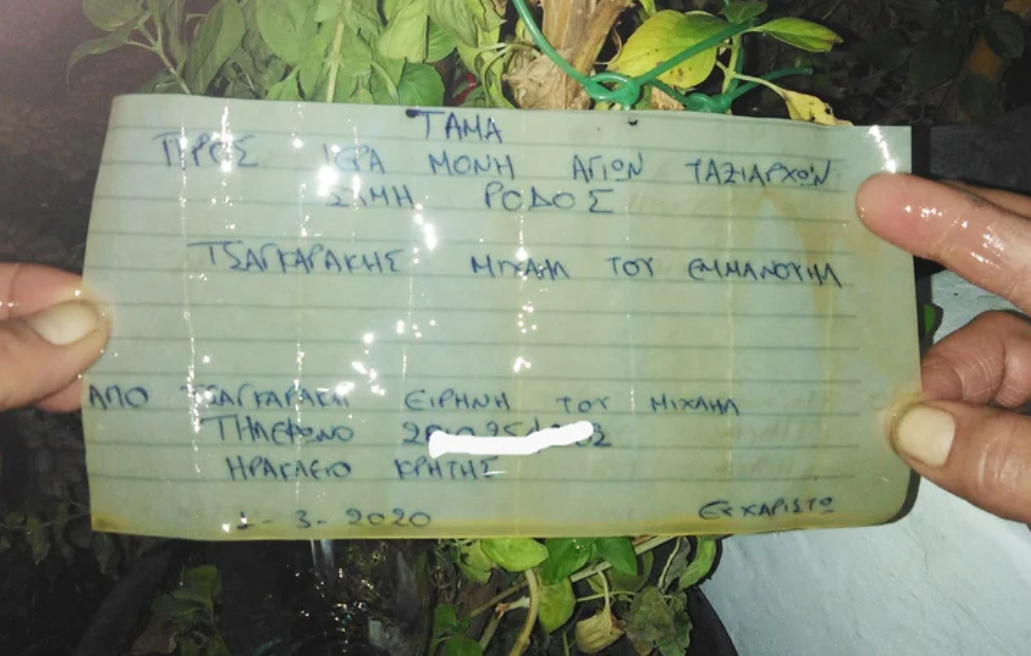 ΤΑΜΑ
ΠΡΟΣ ΙΕΡΑ ΜΟΝΗ ΑΓΙΩΝ ΤΑΞΙΑΡΧΩΝ
ΣΥΜΗ ΡΟΔΟΣ
ΤΣΑΓΚΑΡΑΚΗΣ ΜΙΧΑΗΛ ΤΟΥ ΕΜΜΑΝΟΥΗΛ
ΑΠΟ ΤΣΑΓΚΑΡΑΚΗ ΕΙΡΗΝΗ ΤΟΥ ΜΙΧΑΗΛ
ΤΗΛΕΦΩΝΟ
ΗΡΑΚΛΕΙΟ ΚΡΗΤΗΣ
- 3 - 2020 ΕΥΧΑΡΙΣΤΩ